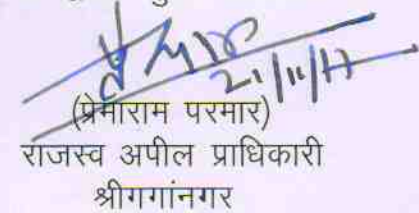 21/11/17
(प्रेमाराम परमार)
राजस्व अपील प्राधिकारी
श्रीगगांनगर